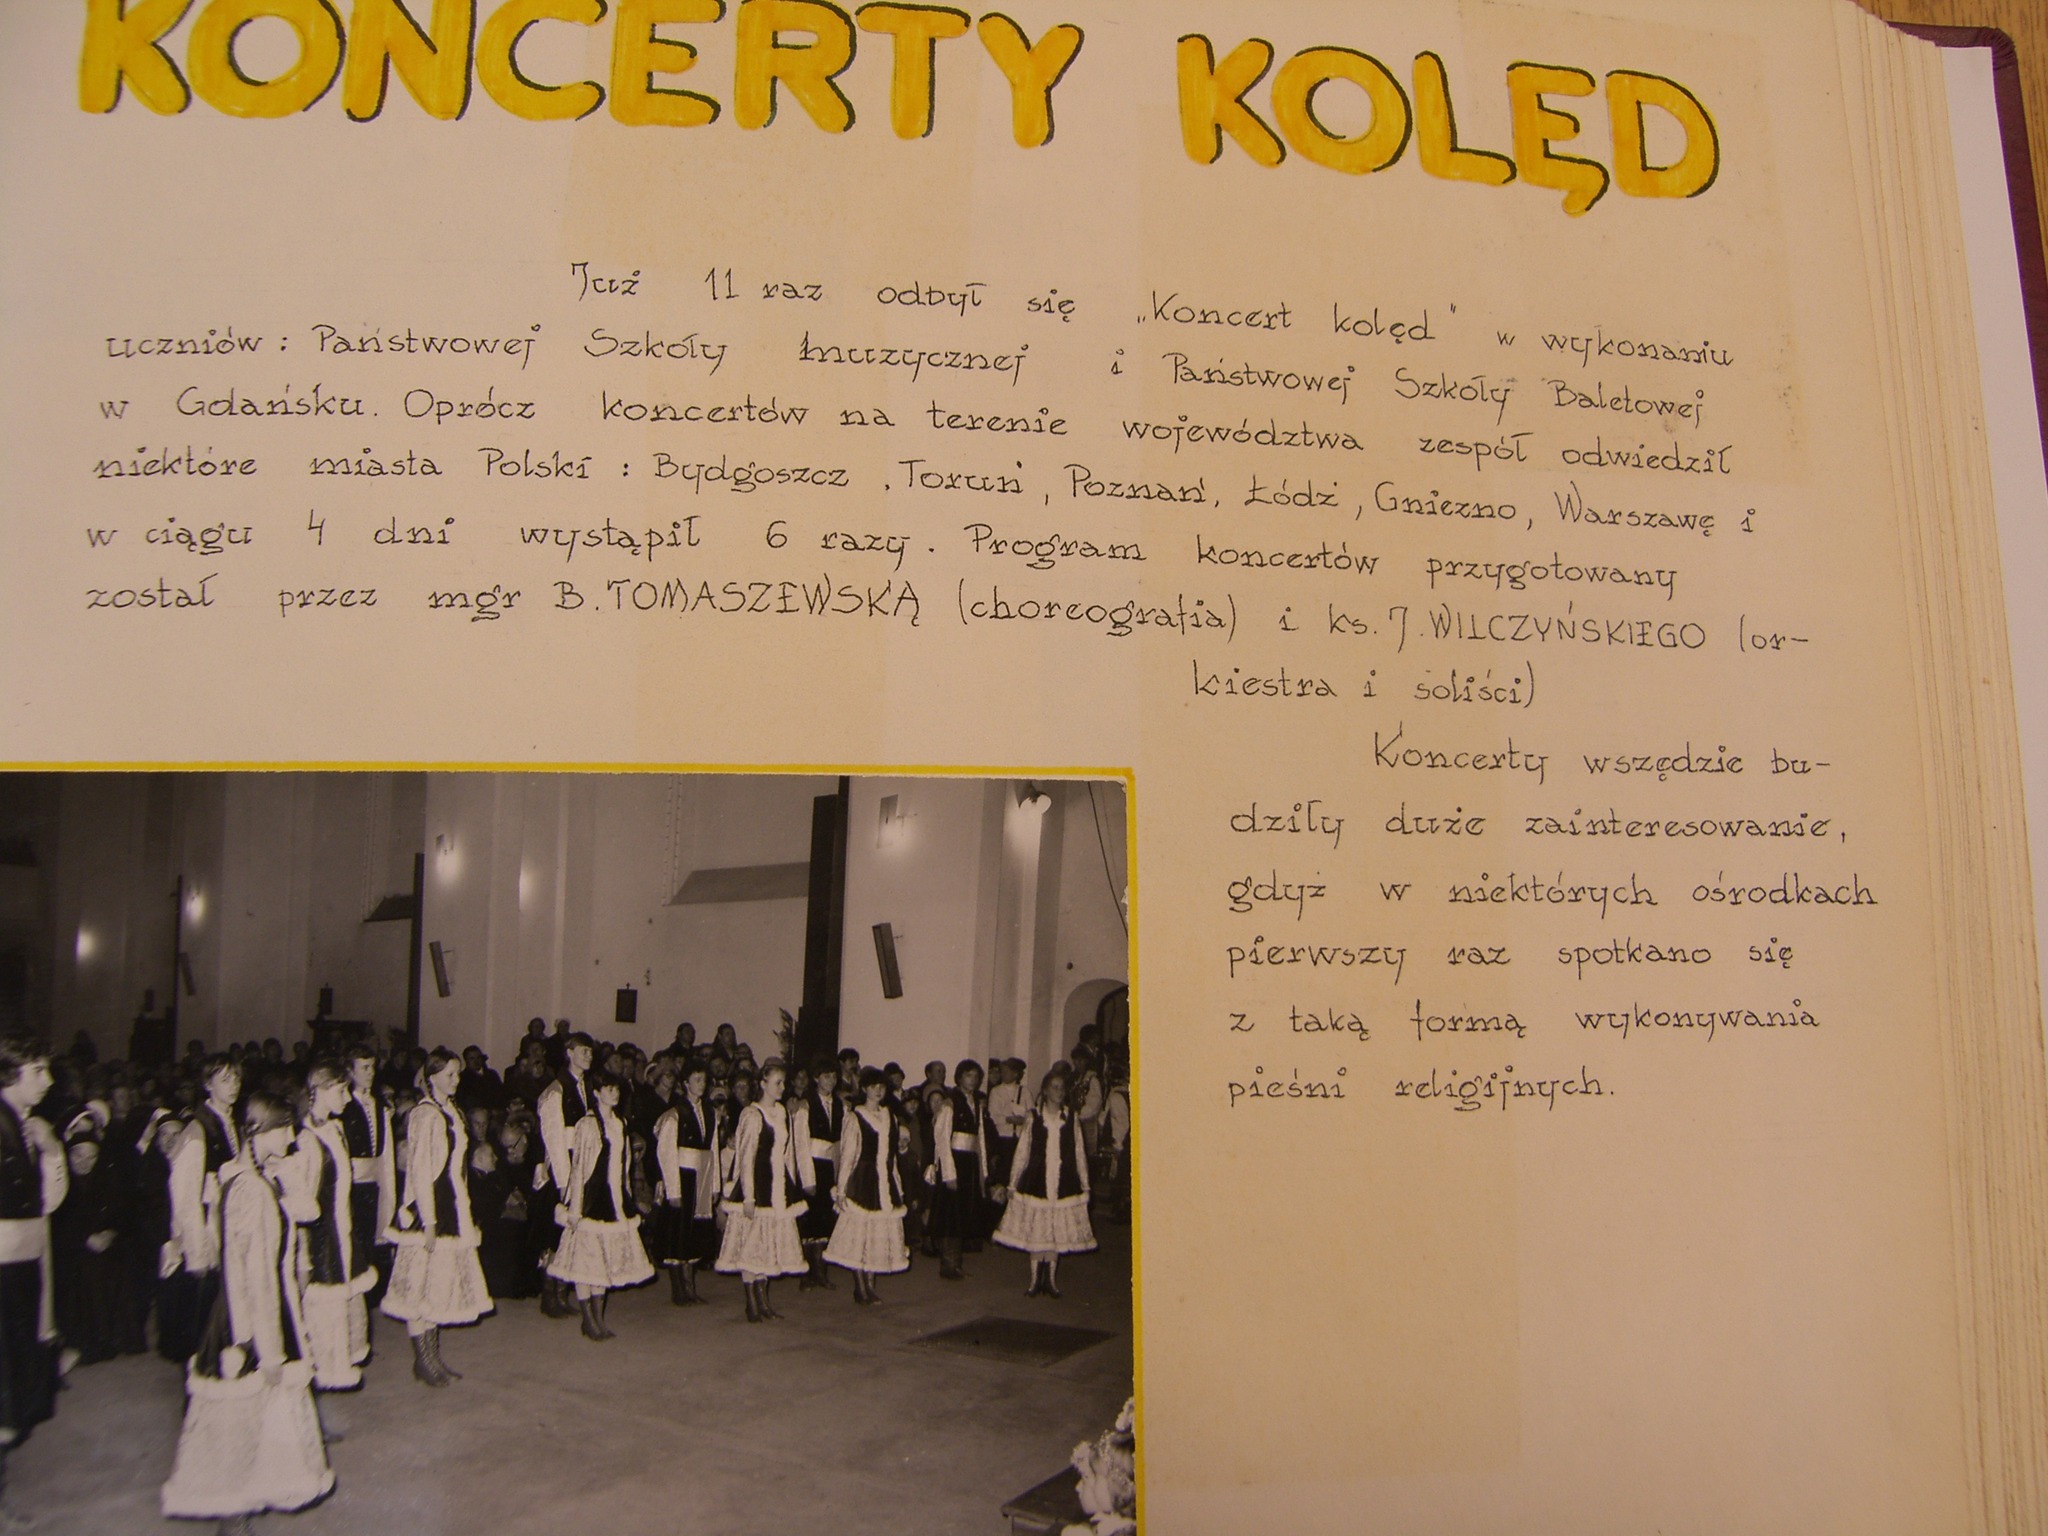 KONCERTY KOLĘD
Już 11 raz odbył się „Koncert kolęd" w wykonaniu
uczniów : Państwowej Szkoły muzycznej i Państwowej Szkoły Baletowej
w Gdańsku. Oprócz koncertów na terenie województwa zespół odwiedził
niektóre miasta Polski : Bydgoszcz , Toruń , Poznań, Łódź , Gniezno, Warszawę i
w ciągu 4 dni wystąpił 6 razy . Program koncertów przygotowany
został przez mgr B. TOMASZEWSKĄ (choreografia) i ks. J. WILCZYŃSKIEGO (or-
kiestra i soliści)
Koncerty wszędzie bu-
dziły duże zainteresowanie,
gdyż w niektórych ośrodkach
pierwszy raz spotkano się
z taką formą wykonywania
pieśni religijnych.